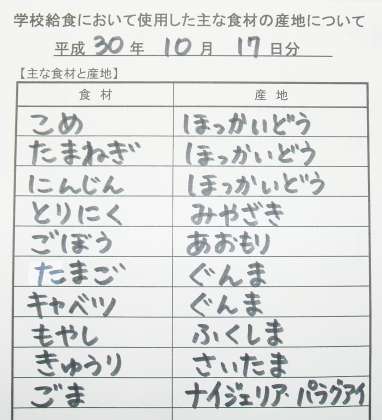 学校給食において使用した主な食材の産地について
平成 30 年 10 月 17 日分
【主な食材と産地】
食材 産地
こめ ほっかいどう
たまねぎ ほっかいどう
にんじん ほっかいどう
とりにく みやざき
ごぼう あおもり
たまご ぐんま
キャベツ ぐんま
もやし ふくしま
きゅうり さいたま
ごま ナイジェリア・パラグアイ